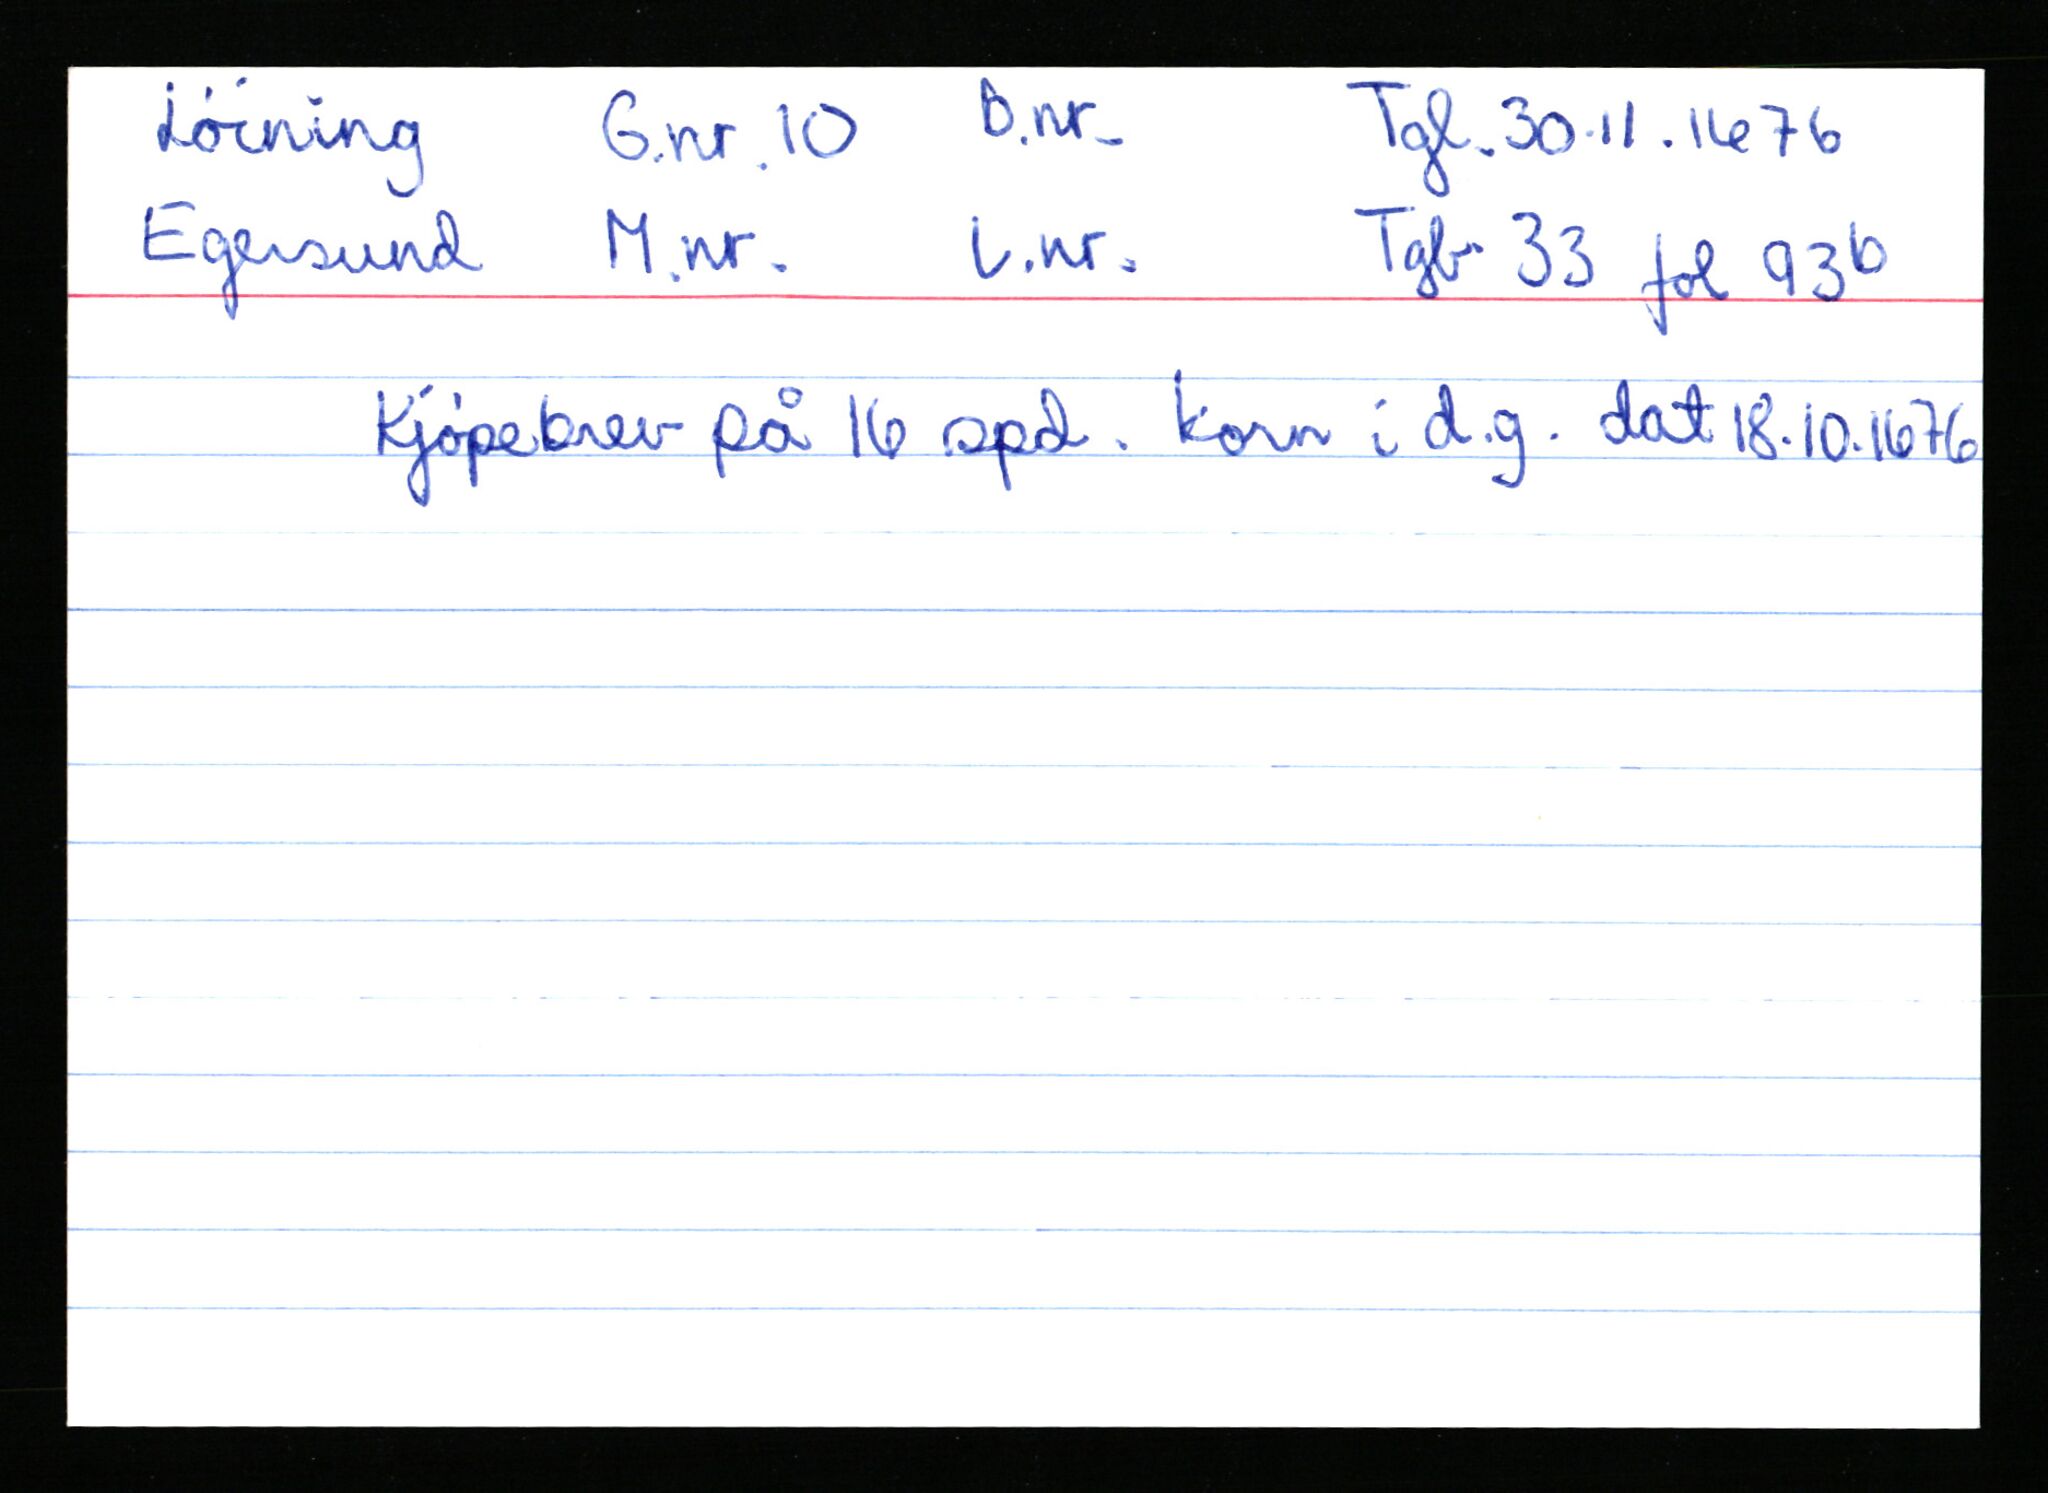 Löining G.nr. 10 B.nr. Tgl. 30.11.1676
Egersund M.nr. L.nr. Tgb. 33 fol 93b
Kjópebrev på 16 spd. korn i d.g. dat 18.10.1676